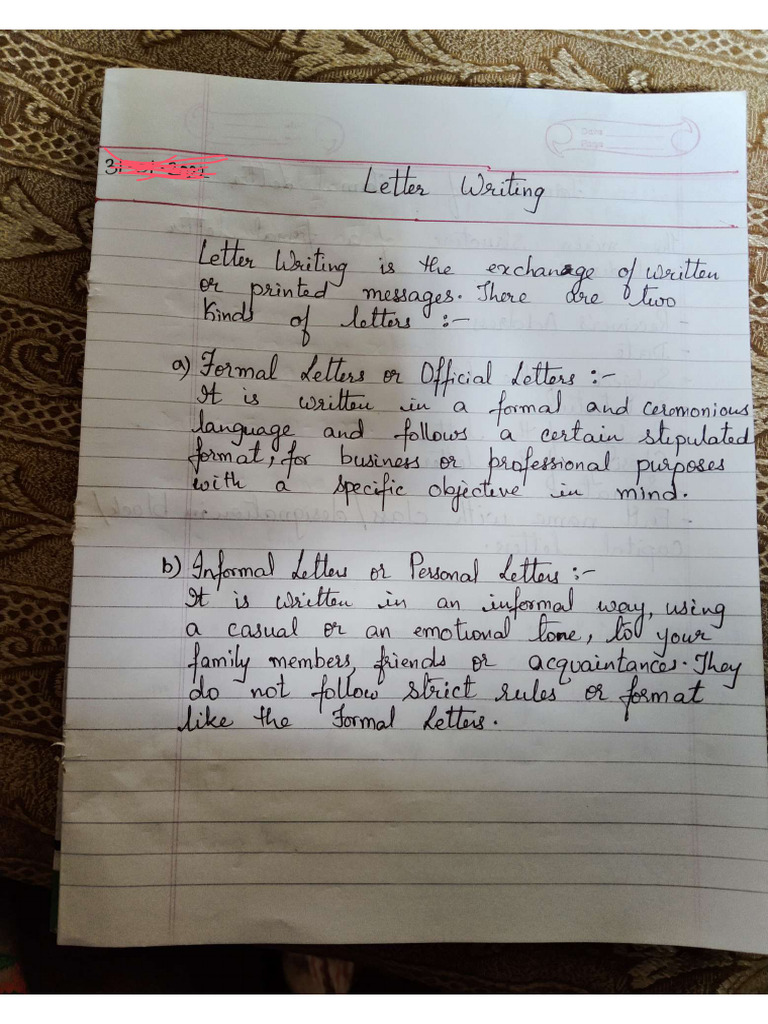 Letter Writing
Letter Writing is the exchange of written
or printed messages. There are two
kinds of letters :-
a) Formal Letters or Official Letters :-
It is written in a formal and ceremonious
language and follows a certain stipulated
format, for business or professional purposes
with a specific objective in mind.
b) Informal Letters or Personal Letters :-
It is written in an informal way, using
a casual or an emotional tone, to your
family members, friends or acquaintances. They
do not follow strict rules or format
like the Formal Letters.